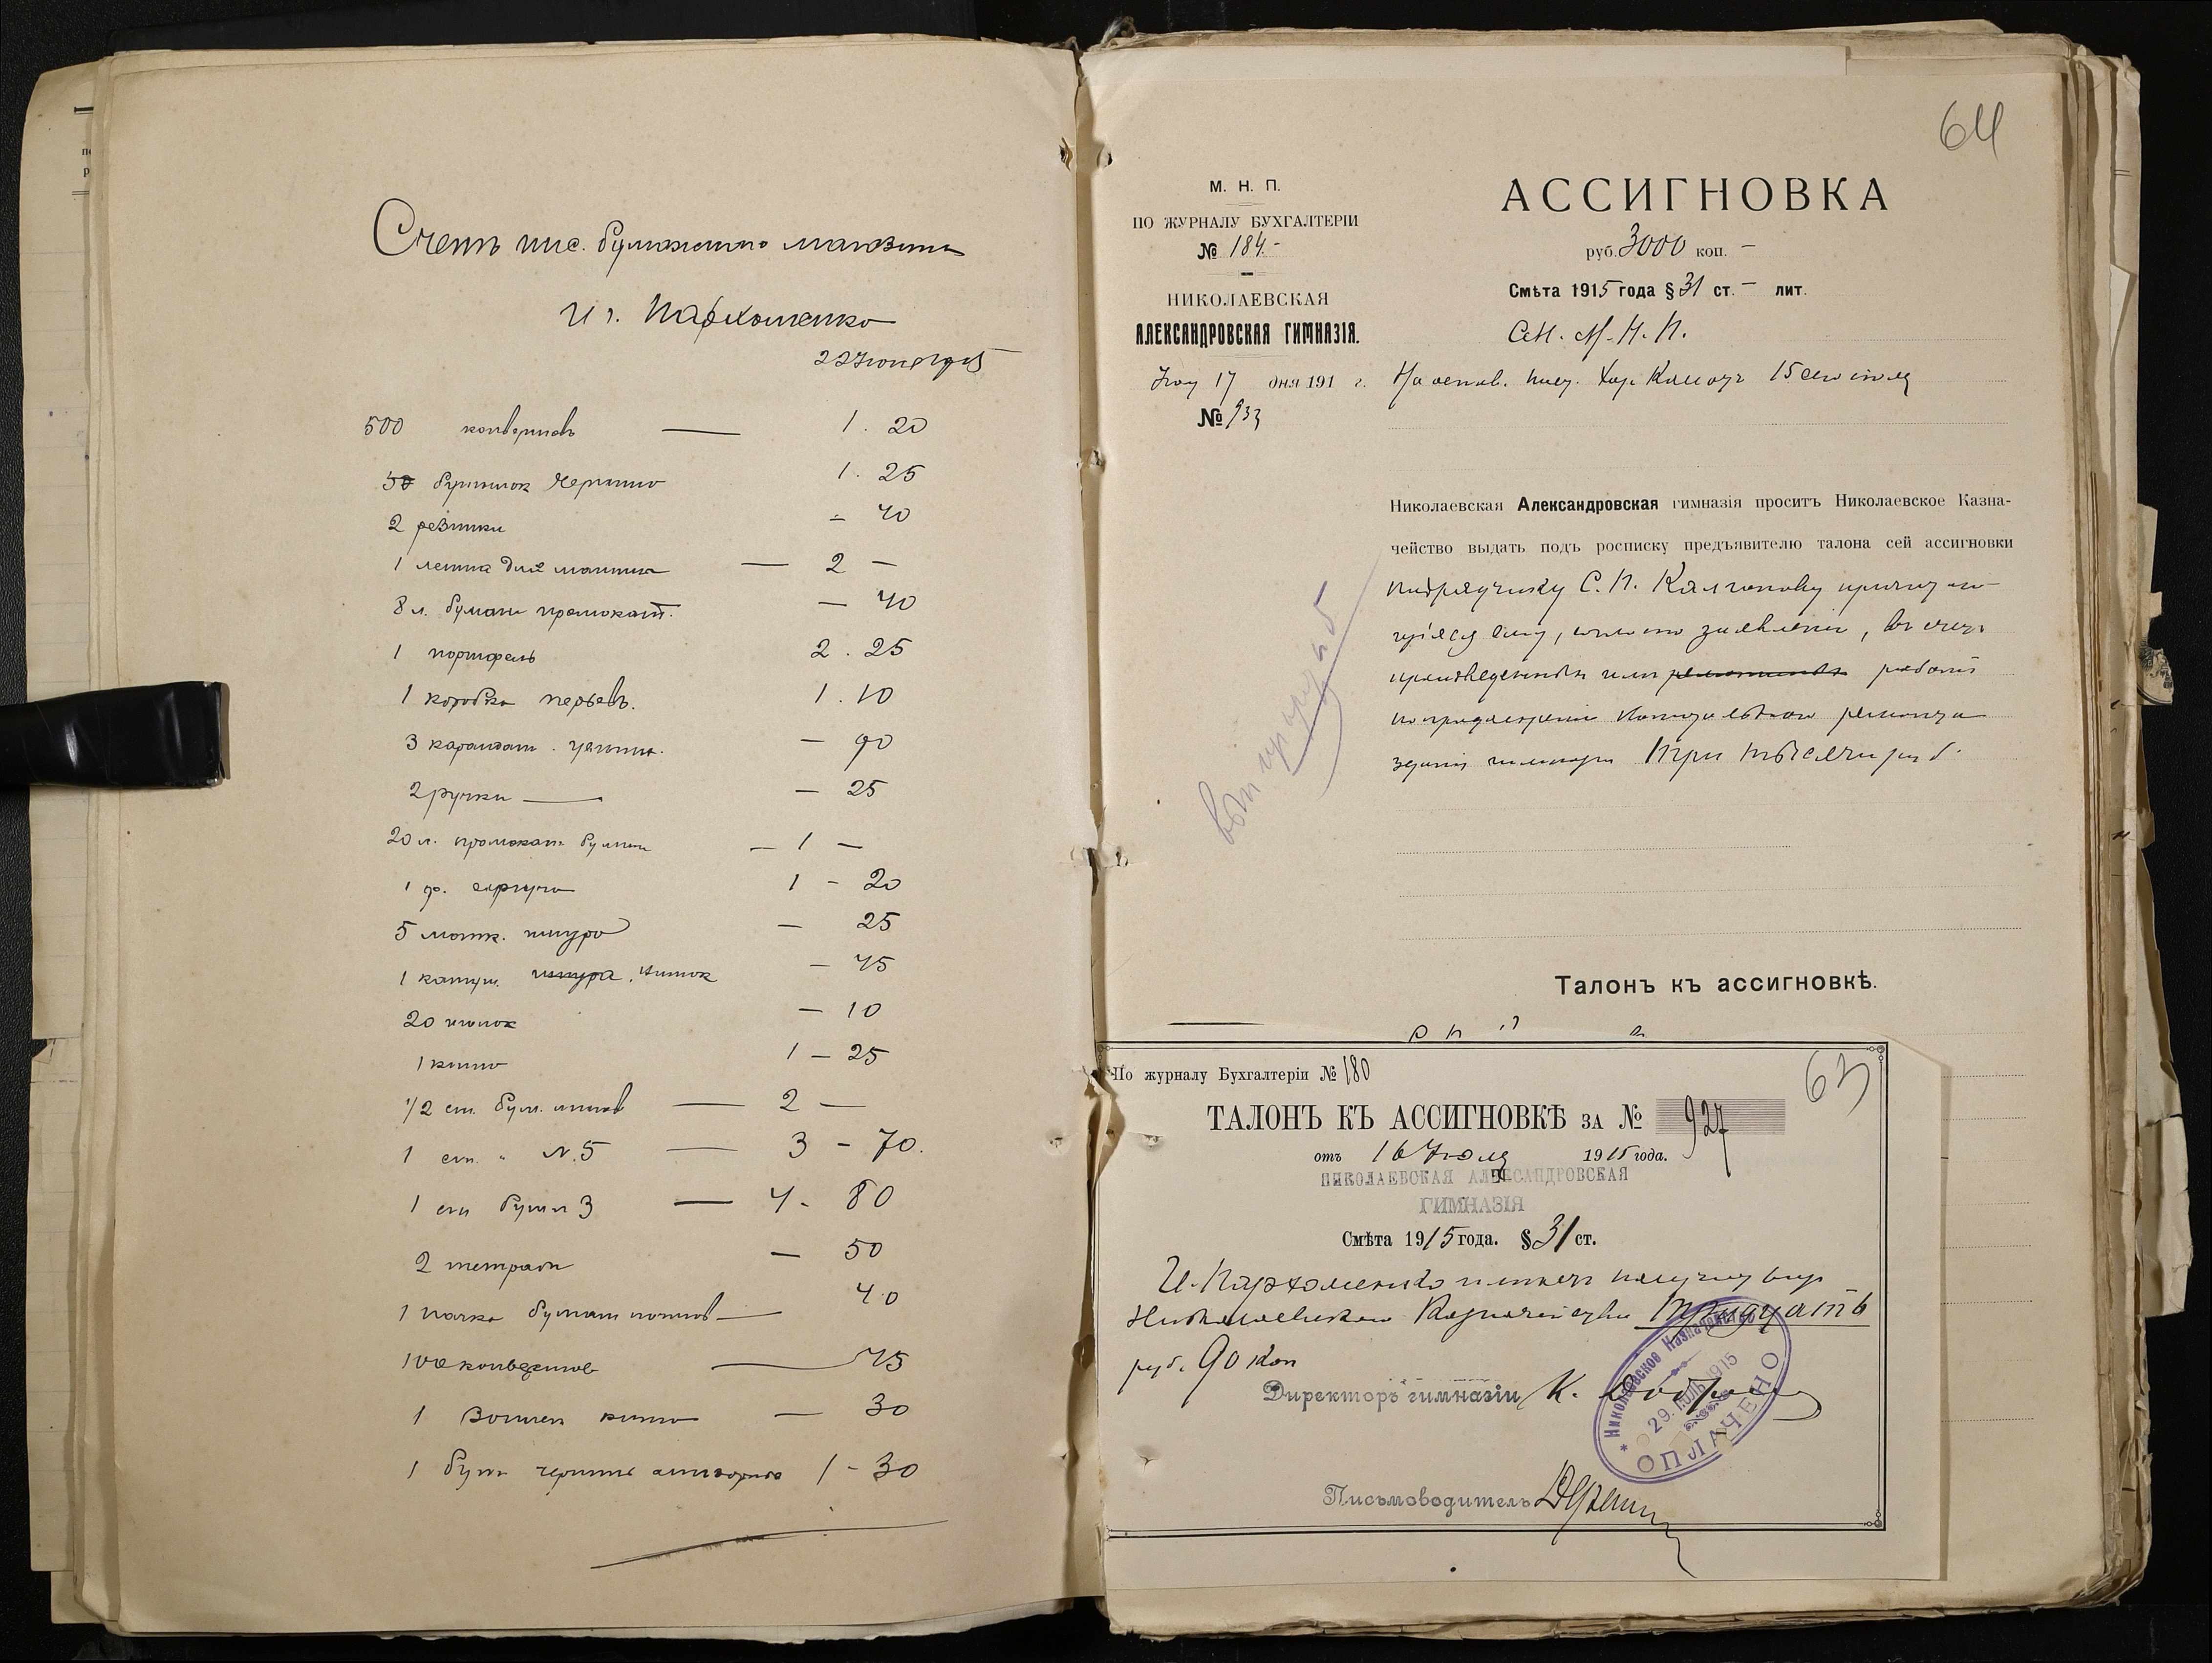 Счетъ пис. бумажного магазина
И г. Пархоменко
22 Іюня 1915
500 конвертовъ — 1. 20
бутылок чернило 1. 25
2 резинки – 40
1 лента для машины — 2 —
8 л. бумаги промокат. — 40
1 портфель 2. 25
1 коробка перьевъ. 1. 10
3 карандаш. — 90
2 ручки — — 25
20 л. промокат. бумаги — 1 —
1 ф. сургуча 1 - 20
5 мотк. шнура — 25
1 катуш. шнура, ниток — 45
20 иголок — 10
1 книга 1 - 25
1/2 ст. бум. — 2 —
1 ст. " N. 5 — 3 - 70.
1 ст. бумаги 3 — 4 - 80
2 тетради — 50
1 пачка бумаги 40
100 конвертов — 45
1 книга — 30
1 бут. чернила 1 - 30
64
М. Н. П.
ПО ЖУРНАЛУ БУХГАЛТЕРІИ
№ 184.-
НИКОЛАЕВСКАЯ
АЛЕКСАНДРОВСКАЯ ГИМНАЗІЯ.
17 дня 191 г.
№ 933
АССИГНОВКА
руб. 3000 коп. –
Смѣта 1915 года § 31 ст. – лит.
М. Н. П.
На основ. 15 сего
Николаевская Александровская гимназія проситъ Николаевское Казна-
чейство выдать подъ росписку предъявителю талона сей ассигновки
подрядчику С. П. причитаю-
щіяся ему, согласно заявленію, въ счетъ
произведенныхъ имъ работъ
ремонта
зданія гимназіи Три тысячи руб.
Талонъ къ ассигновкѣ.
По журналу Бухгалтеріи № 180
63
ТАЛОНЪ КЪ АССИГНОВКѢ за № 927
отъ 16 Іюля 1915 года.
НИКОЛАЕВСКАЯ АЛЕКСАНДРОВСКАЯ
ГИМНАЗІЯ
Смѣта 1915 года. § 31 ст.
И. Пархоменко имѣетъ получить изъ
Николаевскаго Казначейства Тридцать
руб. 90 коп
Директоръ гимназіи К.
Николаевское Казначейство
29. ІЮЛЬ 1915
ОПЛАЧЕНО
Письмоводитель